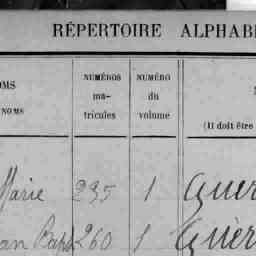 RÉPERTOIRE ALPHAB
OMS
NOMS
NUMÉROS
ma-
tricules
NUMÉRO
du
volume
(Il doit être
Marie 235 1 Guer
an Bapt 260 1 Guér